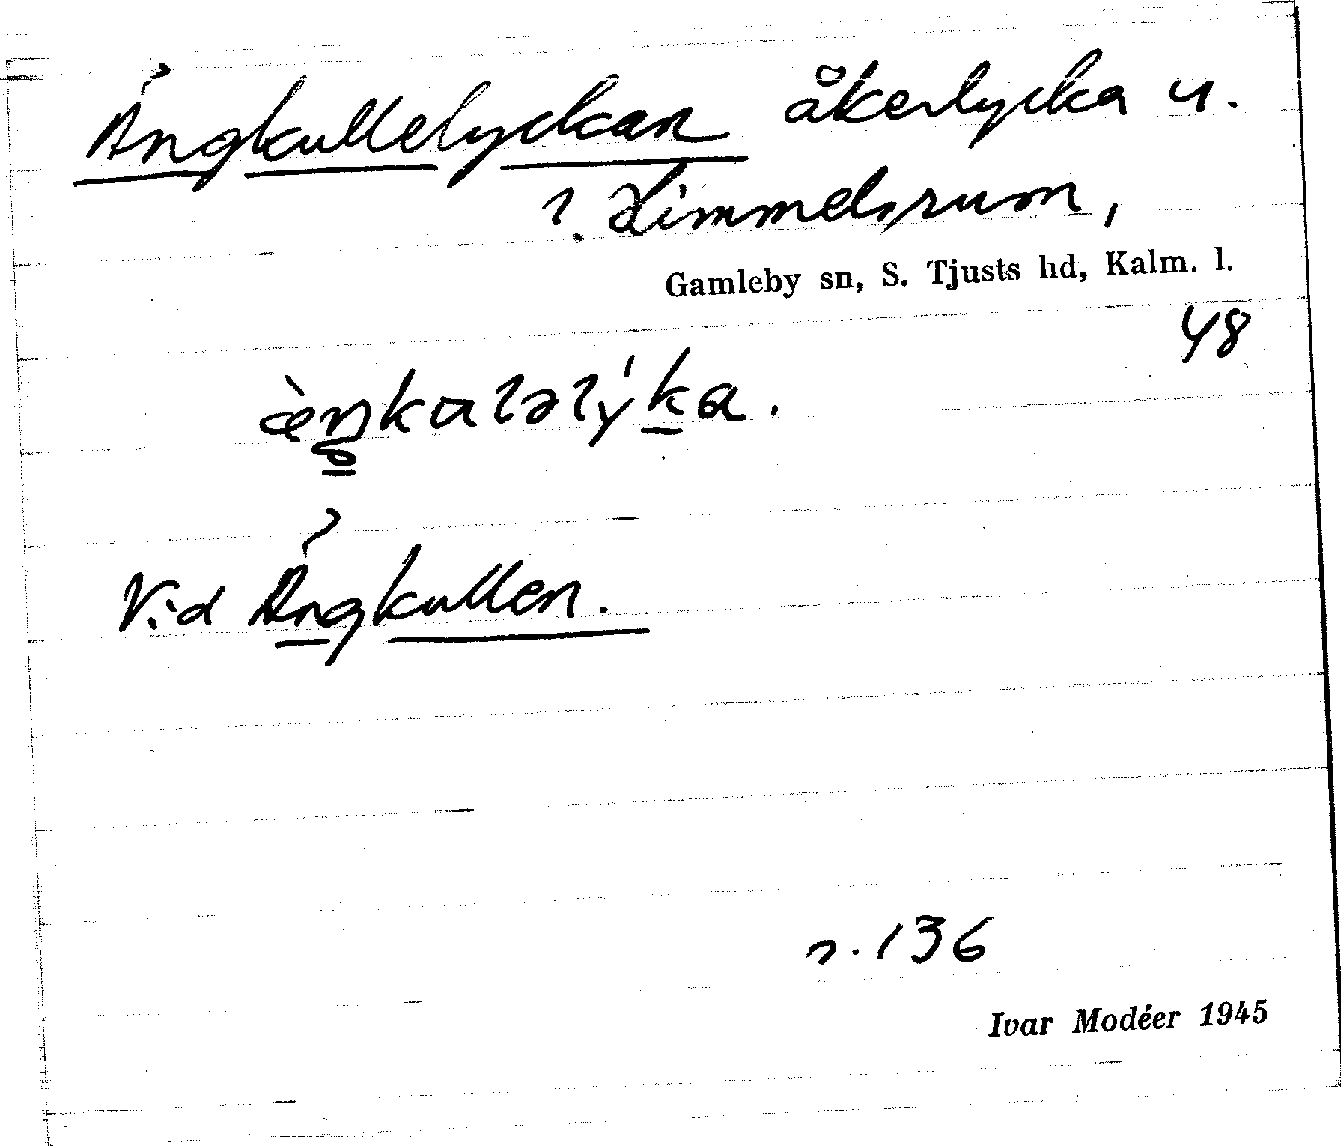 Ängkullelyckan åkerlycka u.
l. Limmelsrum,
Gamleby sn, S. Tjusts hd, Kalm. l.
48
Vid Ängkullen.
n. 136
Ivar Modéer 1945